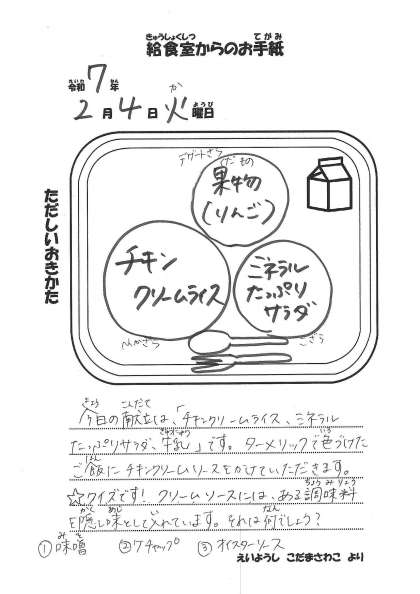 きゅうしょくしつ てがみ
給食室からのお手紙
れいわ ねん
令和7年
か ようび
2月4日火曜日
ただしいおきかた
デザートざら
くだもの
果物
(りんご)
チキン
クリームライス
ミネラル
たっぷり
サラダ
こざら
きょう こんだて
今日の献立は、「チキンクリームライス、ミネラル
ぎゅうにゅう いろ
たっぷりサラダ、牛乳」です。ターメリックで色づけた
はん
ご飯にチキンクリームソースをかけていただきます。
ちょうみりょう
☆クイズです! クリームソースには、ある調味料
かく あじ なん
を隠し味として入れています。それは何でしょう?
みそ
①味噌 ②ケチャップ ③オイスターソース
えいようし こだまさわこ より